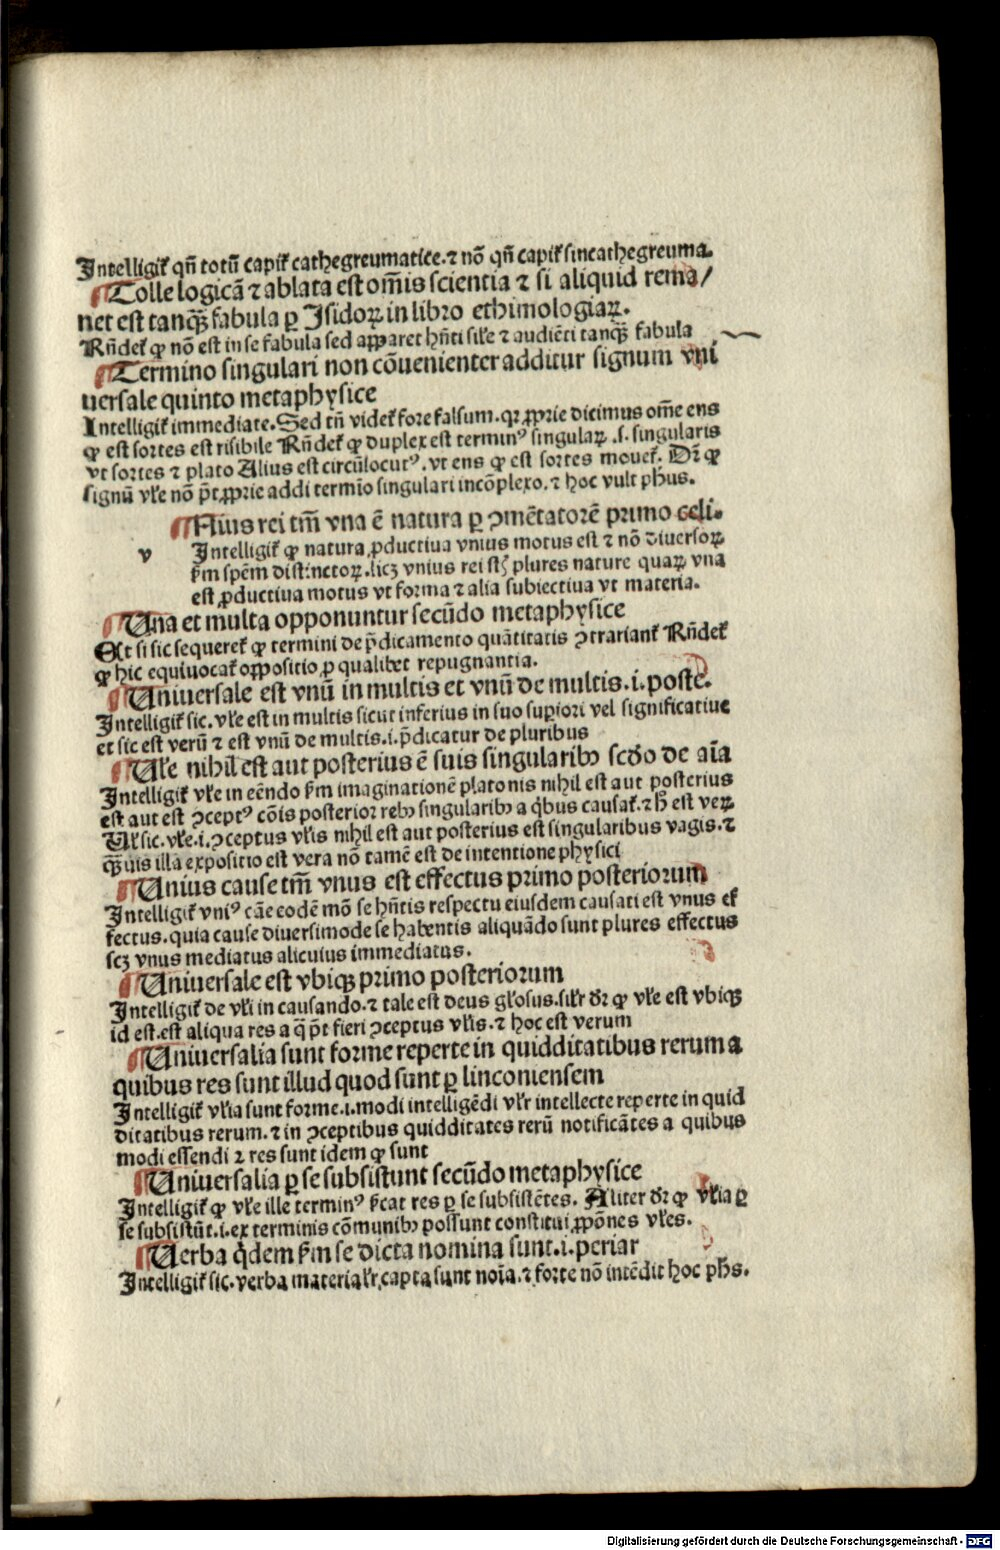 Intelligit̉ qñ totũ capit̉ cathegreumatice.⁊ nõ qñ capit̉ sincathegreuma.
¶Tolle logicã ⁊ ablata est om̃is scientia ⁊ si aliquid rema/
net est tanqꝫ̃ fabula ꝑ Isidoꝝ in libro ethimologiaꝝ.
Rñdet̉ ꝙ nõ est in se fabula sed apparet hñti sil̉e ⁊ audiẽti tanqꝫ̃ fabula
¶Termino singulari non cõuenienter additur signum vni
uersale quinto metaphysice
Intelligit̉ immediate. Sed tñ videt̉ fore falsum. qꝛ ꝓprie dicimus om̃e ens
ꝙ est sortes est risibile Rñdet̉ ꝙ duplex est terminꝰ singulaꝝ .s. singularis
vt sortes ⁊ plato Alius est circũlocutꝰ. vt ens ꝙ est sortes mouet̉. Dr̃ ꝙ
signũ vl̉e nõ p̃t ꝓprie addi termĩo singulari incõplexo. ⁊ hoc vult ph̃us.
¶Nius rei tm̃ vna ẽ natura ꝑ ↄmẽtatorẽ primo celi.
v Intelligit̉ ꝙ natura ꝓductiua vnius motus est ⁊ nõ diuersoꝝ
ẜm spẽm distinctoꝝ. licꝫ vnius rei st̃ plures nature quaꝝ vna
est ꝓductiua motus vt forma ⁊ alia subiectiua vt materia.
¶Una et multa opponuntur secũdo metaphysice
Et si sic sequeret̉ ꝙ termini de p̃dicamento quãtitatis ↄtrariant̉ Rñdet̉
ꝙ hic equiuocat̉ oppositio ꝓ qualibet repugnantia.
¶Uniuersale est vnũ in multis et vnũ de multis .i. poste.
Intelligit̉ sic. vl̉e est in multis sicut inferius in suo suꝑiori vel significatiue
et sic est verũ ⁊ est vnũ de multis .i. p̃dicatur de pluribus
¶Ul̉e nihil est aut posterius ẽ suis singularibꝰ scd̃o de aĩa
Intelligit̉ vl̉e in eẽndo ẜm imaginationẽ platonis nihil est aut posterius
est aut est ↄceptꝰ cõis posterior rebꝰ singularibꝰ a q̇bus causat̉. ⁊ h̃ est veꝝ
Ul̉ sic. vl̉e .i. ↄceptus vl̉is nihil est aut posterius est singularibus vagis. ⁊
qꝫ̃uis illa expositio est vera nõ tamẽ est de intentione physici
¶Unius cause tm̃ vnus est effectus primo posteriorum
Intelligit̉ vniꝰ cãe eodẽ mõ se hñtis respectu eiusdem causati est vnus ef
fectus. quia cause diuersimode se habentis aliquãdo sunt plures effectus
scꝫ vnus mediatus alicuius immediatus.
¶Uniuersale est vbiqꝫ primo posteriorum
Intelligit̉ de vl̉i in causando. ⁊ tale est deus gl̉osus. sil̉r dr̃ ꝙ vl̉e est vbiqꝫ
id est. est aliqua res a q̃ p̃t fieri ↄceptus vl̉is. ⁊ hoc est verum
¶Uniuersalia sunt forme reperte in quidditatibus rerum a
quibus res sunt illud quod sunt ꝑ linconiensem
Intelligit̉ vl̉ia sunt forme .i. modi intelligẽdi vl̉r intellecte reperte in quid
ditatibus rerum. ⁊ in ↄceptibus quidditates rerũ notificãtes a quibus
modi essendi ⁊ res sunt idem ꝙ sunt
¶Uniuersalia ꝑ se subsistunt secũdo metaphysice
Intelligit̉ ꝙ vl̉e ille terminꝰ ẜcat res ꝑ se subsistẽtes. Aliter dr̃ ꝙ vl̉ia ꝑ
se subsistũt .i. ex terminis cõmunibꝰ possunt constitui ꝓpõnes vl̉es.
¶Uerba q̇dem ẜm se dicta nomina sunt .i. periar
Intelligit̉ sic. verba material̉r capta sunt noĩa. ⁊ forte nõ intẽdit hoc ph̃s.
Digitalisierung gefördert durch die Deutsche Forschungsgemeinschaft - DFG